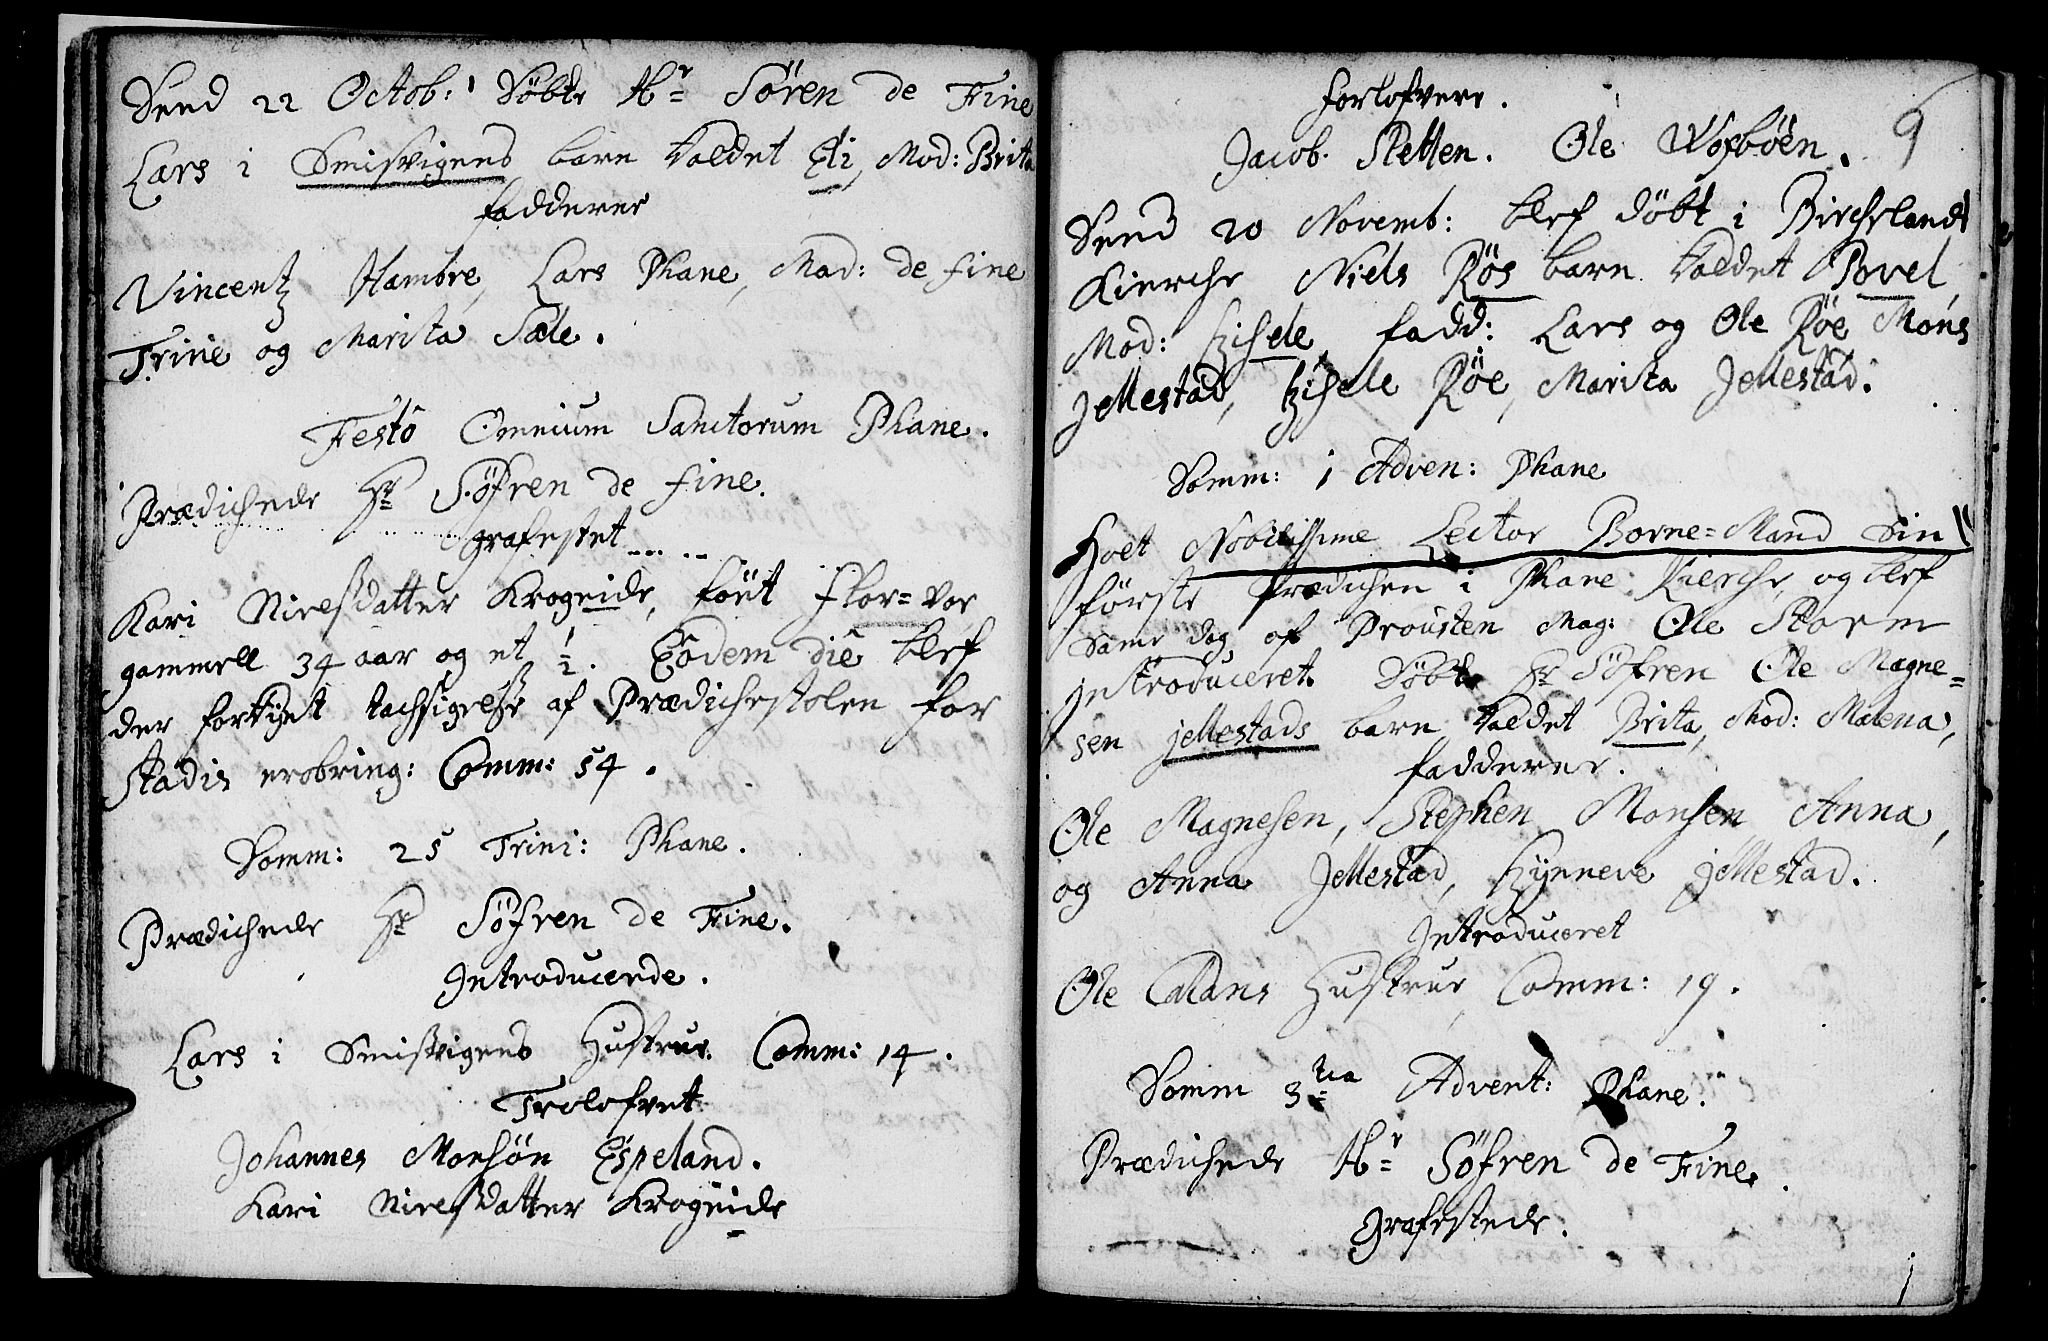 Dend 22 Octob: Döbte Hr Sören de Fine
Lars i Smisvigens barn kaldet Eli, Mod: Brita
fadderne
Vincentz Hambre, Lars Phane, Mad: de fine
Trine og Marita Sæle.
Festô Omnium Sanctorum Phane.
Prædichede Hr Söfren de fine.
grafestet
Kari Nielsdatter Krogeide, föet
gammell 34 aar og et ½. Eôdem diê blef
der forkÿnt tachsigelse af Prædichestolen for
Stadis erobring: Comm: 54.
Domm: 25 Trini: Phane.
Prædichede Hr Söfren de Fine.
Introducerede.
Lars i Smisvigens Hustrue. Comm: 14.
Trolofvet
Johannes Monsön Espeland.
Kari Nielsdatter Krogeide
forlofvere.
9
Jacob Stetten. Ole
Dend 20 Novemb: blef döbt i Birchelands
Kierche Niels Röes barn kaldet Povel,
Mod: Zisele, fadd: Lars og Ole Röe Mons
Jellestad, Zisele Röe, Marita Jellestad.
Domm: 1 Adven: Phane
Holt Nobilissime Lector Borne=Mand sin
förste Prædichen i Phane Kierche, og blef
same dag af Prousten Mag: Ole Storm
introduceret. Döbte Hr Söfren Ole Magne=
sen jellestads barn kaldet Brita, Mod: Malena,
fadderne.
Ole Magnesen, Stephen Monsen, Anna,
og Anna Jellestad, Zynneve jellestad.
Introduceret
Ole Hustrue, Comm: 19.
Domm 3tia Advent: Phane.
Prædichede Hr Söfren de Fine.
Grafestede.